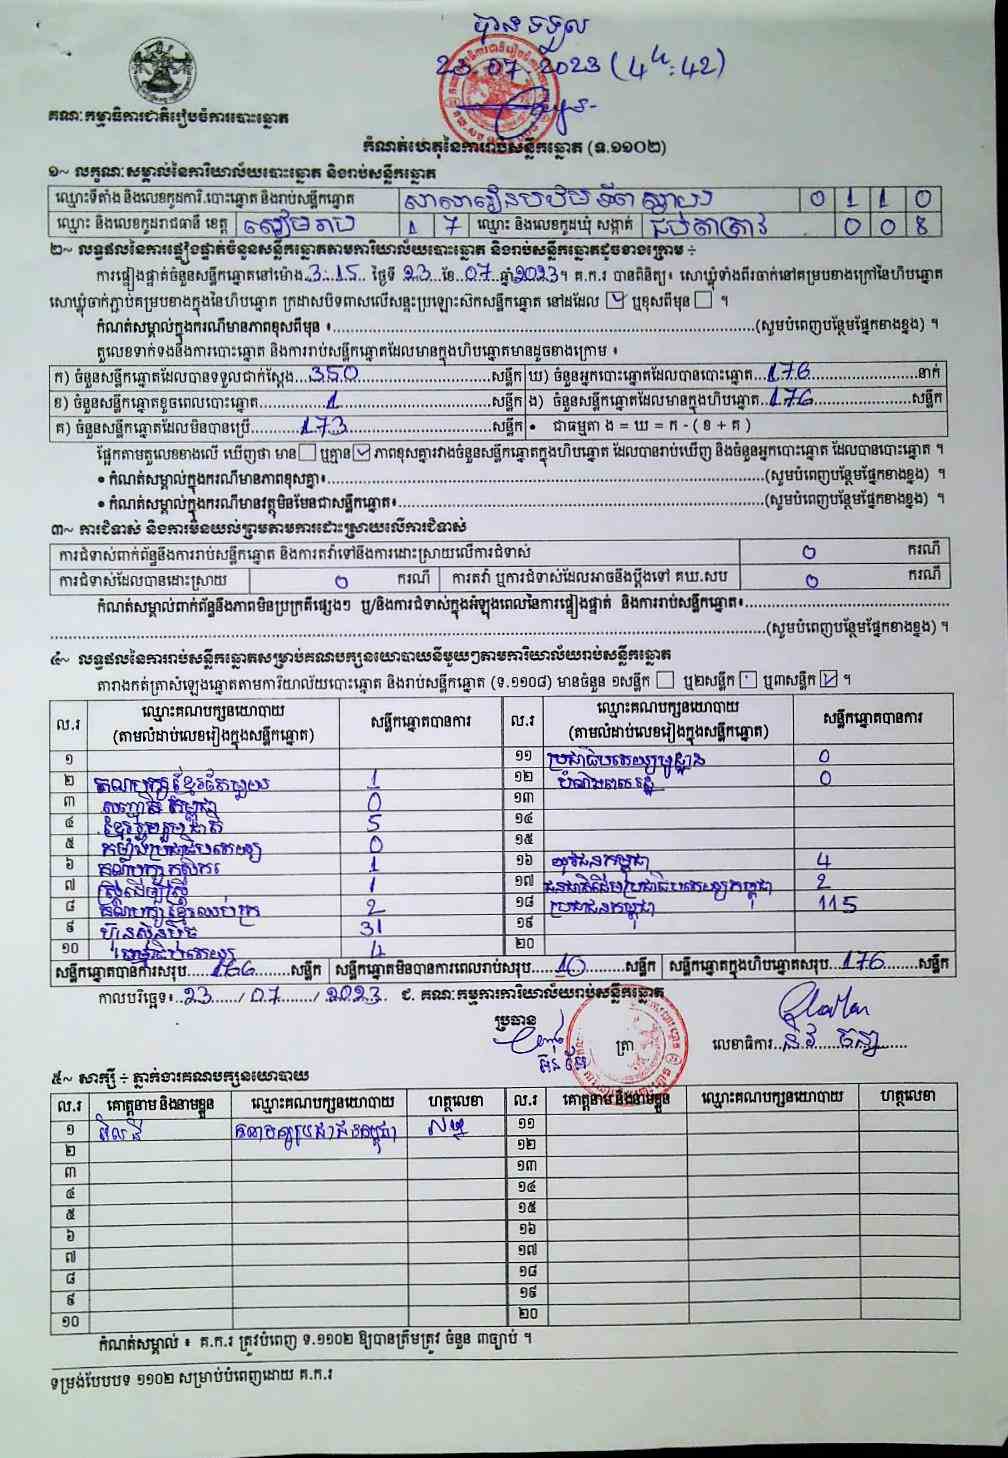 បានទទួល
23.07.2023 (4:42)
គណៈកម្មាធិការជាតិរៀបចំការបោះឆ្នោត
កំណត់ហេតុនៃការរាប់សន្លឹកឆ្នោត (ទ.១១០២)
១~ លក្ខណៈសម្គាល់នៃការិយាល័យបោះឆ្នោត និងរាប់សន្លឹកឆ្នោត
ឈ្មោះទីតាំង និងលេខកូដការិ.បោះឆ្នោត និងរាប់សន្លឹកឆ្នោត 0 1 1 0
ឈ្មោះ និងលេខកូដរាជធានី ខេត្ត សៀមរាប 1 7 ឈ្មោះ និងលេខកូដឃុំ សង្កាត់ ជប់តាត្រាវ 0 0 8
២~ លទ្ធផលនៃការផ្ទៀងផ្ទាត់ចំនួនសន្លឹកឆ្នោតតាមការិយាល័យបោះឆ្នោត និងរាប់សន្លឹកឆ្នោតដូចខាងក្រោម ÷
ការផ្ទៀងផ្ទាត់ចំនួនសន្លឹកឆ្នោតនៅម៉ោង 3:15 ថ្ងៃទី 23 ខែ 07 ឆ្នាំ 2023។ គ.ក.រ បានពិនិត្យ៖ សោឃ្លុំទាំងពីរចាក់នៅគម្របខាងក្រៅនៃហិបឆ្នោត
សោឃ្លុំចាក់ភ្ជាប់គម្របខាងក្នុងនៃហិបឆ្នោត ក្រដាសបិទពាសលើសន្ទះប្រឡោះសិកសន្លឹកឆ្នោត នៅដដែល ☑ ឬខុសពីមុន ☐ ។
កំណត់សម្គាល់ក្នុងករណីមានភាពខុសពីមុន ៖ (សូមបំពេញបន្ថែមផ្នែកខាងខ្នង) ។
តួលេខទាក់ទងនឹងការបោះឆ្នោត និងការរាប់សន្លឹកឆ្នោតដែលមានក្នុងហិបឆ្នោតមានដូចខាងក្រោម ៖
ក) ចំនួនសន្លឹកឆ្នោតដែលបានទទួលជាក់ស្តែង 350 សន្លឹក ឃ) ចំនួនអ្នកបោះឆ្នោតដែលបានបោះឆ្នោត 176 នាក់
ខ) ចំនួនសន្លឹកឆ្នោតខូចពេលបោះឆ្នោត 1 សន្លឹក ង) ចំនួនសន្លឹកឆ្នោតដែលមានក្នុងហិបឆ្នោត 176 សន្លឹក
គ) ចំនួនសន្លឹកឆ្នោតដែលមិនបានប្រើ 173 សន្លឹក • ជាធម្មតា ង = ឃ = ក - ( ខ + គ )
ផ្អែកតាមតួលេខខាងលើ ឃើញថា មាន ☐ ឬគ្មាន ☑ ភាពខុសគ្នារវាងចំនួនសន្លឹកឆ្នោតក្នុងហិបឆ្នោត ដែលបានរាប់ឃើញ និងចំនួនអ្នកបោះឆ្នោត ដែលបានបោះឆ្នោត ។
• កំណត់សម្គាល់ក្នុងករណីមានភាពខុសគ្នា៖ (សូមបំពេញបន្ថែមផ្នែកខាងខ្នង) ។
• កំណត់សម្គាល់ក្នុងករណីមានវត្ថុមិនមែនជាសន្លឹកឆ្នោត៖ (សូមបំពេញបន្ថែមផ្នែកខាងខ្នង) ។
៣~ ការជំទាស់ និងការមិនយល់ព្រមតាមការដោះស្រាយលើការជំទាស់
ការជំទាស់ពាក់ព័ន្ធនឹងការរាប់សន្លឹកឆ្នោត និងការតវ៉ាទៅនឹងការដោះស្រាយលើការជំទាស់ 0 ករណី
ការជំទាស់ដែលបានដោះស្រាយ 0 ករណី ការតវ៉ា ឬការជំទាស់ដែលអាចនឹងប្តឹងទៅ គឃ.សប 0 ករណី
កំណត់សម្គាល់ពាក់ព័ន្ធនឹងភាពមិនប្រក្រតីផ្សេងៗ ឬ/និងការជំទាស់ក្នុងអំឡុងពេលនៃការផ្ទៀងផ្ទាត់ និងការរាប់សន្លឹកឆ្នោត៖
(សូមបំពេញបន្ថែមផ្នែកខាងខ្នង) ។
៤~ លទ្ធផលនៃការរាប់សន្លឹកឆ្នោតសម្រាប់គណបក្សនយោបាយនីមួយៗតាមការិយាល័យរាប់សន្លឹកឆ្នោត
តារាងកត់ត្រាសំឡេងឆ្នោតតាមការិយាល័យបោះឆ្នោត និងរាប់សន្លឹកឆ្នោត (ទ.១១០៨) មានចំនួន ១សន្លឹក ☐ ឬ២សន្លឹក ☐ ឬ៣សន្លឹក ☑ ។
ល.រ ឈ្មោះគណបក្សនយោបាយ (តាមលំដាប់លេខរៀងក្នុងសន្លឹកឆ្នោត) សន្លឹកឆ្នោតបានការ ល.រ ឈ្មោះគណបក្សនយោបាយ (តាមលំដាប់លេខរៀងក្នុងសន្លឹកឆ្នោត) សន្លឹកឆ្នោតបានការ
១ ១១ ប្រជាធិបតេយ្យមូលដ្ឋាន 0
២ គណបក្សខ្មែរតែមួយ 1 ១២ 0
៣ សញ្ជាតិកម្ពុជា 0 ១៣
៤ ខ្មែររួបរួមជាតិ 5 ១៤
៥ កម្លាំងប្រជាធិបតេយ្យ 0 ១៥
៦ គណបក្សកសិករ 1 ១៦ យុវជនកម្ពុជា 4
៧ ស្ត្រីដើម្បីស្ត្រី 1 ១៧ ជនជាតិដើមប្រជាធិបតេយ្យកម្ពុជា 2
៨ គណបក្សខ្មែរឈប់ក្រ 2 ១៨ ប្រជាជនកម្ពុជា 115
៩ ហ៊្វុនស៊ិនប៉ិច 31 ១៩
១០ 4 ២០
សន្លឹកឆ្នោតបានការសរុប 166 សន្លឹក សន្លឹកឆ្នោតមិនបានការពេលរាប់សរុប 10 សន្លឹក សន្លឹកឆ្នោតក្នុងហិបឆ្នោតសរុប 176 សន្លឹក
កាលបរិច្ឆេទ៖ 23 / 07 / 2023 ជ. គណៈកម្មការការិយាល័យរាប់សន្លឹកឆ្នោត
ប្រធាន
ត្រា លេខាធិការ
៥~ សាក្សី ÷ ភ្នាក់ងារគណបក្សនយោបាយ
ល.រ គោត្តនាម និងនាមខ្លួន ឈ្មោះគណបក្សនយោបាយ ហត្ថលេខា ល.រ គោត្តនាម និងនាមខ្លួន ឈ្មោះគណបក្សនយោបាយ ហត្ថលេខា
១ គណបក្សប្រជាជនកម្ពុជា ១១
២ ១២
៣ ១៣
៤ ១៤
៥ ១៥
៦ ១៦
៧ ១៧
៨ ១៨
៩ ១៩
១០ ២០
កំណត់សម្គាល់ ៖ គ.ក.រ ត្រូវបំពេញ ទ.១១០២ ឱ្យបានត្រឹមត្រូវ ចំនួន ៣ច្បាប់ ។
ទម្រង់បែបបទ ១១០២ សម្រាប់បំពេញដោយ គ.ក.រ